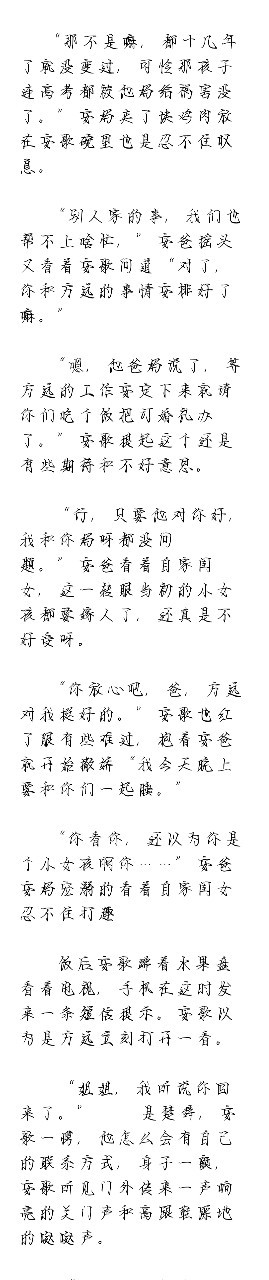 “那不是嘛，都十几年
了就没变过，可怜那孩子
连高考都被他妈给祸害没
了。”安妈夹了块鸡肉放
在安歌碗里也是忍不住叹
息。
“别人家的事，我们也
帮不上啥忙，”安爸摇头
又看着安歌问道“对了，
你和方远的事情安排好了
嘛。”
“嗯，他爸妈说了，等
方远的工作安定下来就请
你们吃个饭把订婚礼办
了。”安歌提起这个还是
有些期待和不好意思。
“行，只要他对你好，
我和你妈呀都没问
题。”安爸看着自家闺
女，这一转眼当初的小女
孩都要嫁人了，还真是不
好受呀。
“你放心吧，爸，方远
对我挺好的。”安歌也红
了眼有些难过，抱着安爸
就开始撒娇“我今天晚上
要和你们一起睡。”
“你看你，还以为你是
个小女孩啊你……”安爸
安妈宠溺的看着自家闺女
忍不住打趣
饭后安歌蹲着水果盘
看着电视，手机在这时发
来一条短信提示。安歌以
为是方远立刻打开一看。
“姐姐，我听说你回
来了。” 是楚舜，安
歌一愣，他怎么会有自己
的联系方式，身子一颤，
安歌听见门外传来一声响
亮的关门声和高跟鞋踩地
的哒哒声。